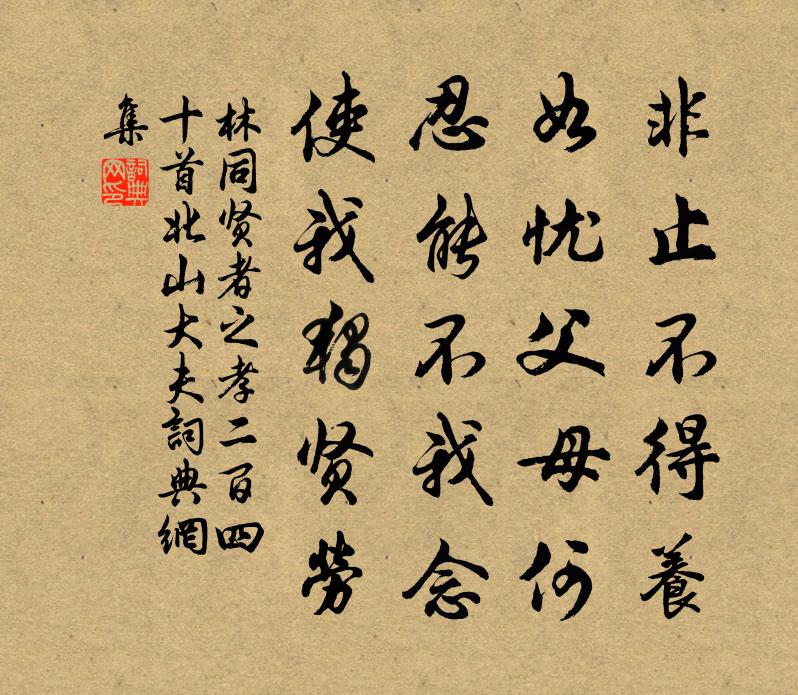 非止不得養
如忧父母何
忍能不我念
使我獨贤勞
林同贤者之孝二百四
十首北山大夫詞典網
集
詞典
网印